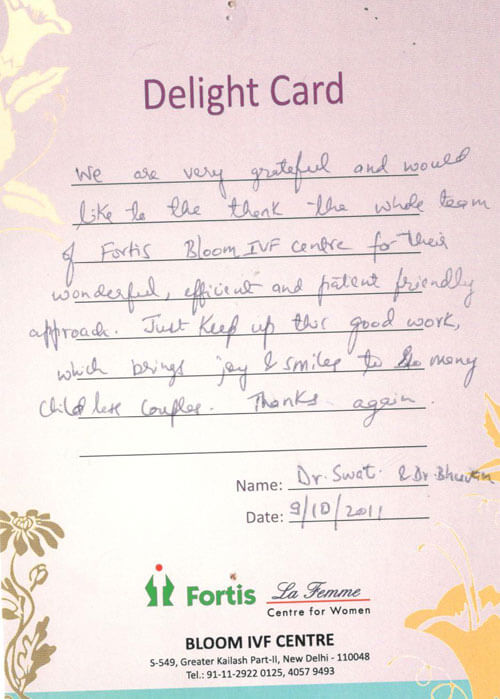 Delight Card
We are very grateful and would
like to the thank the whole team
of Fortis Bloom IVF centre for their
wonderful, efficient and patient friendly
approach. Just keep up this good work,
which brings joy & smiles to so many
Childless Couples. Thanks again.
Name: Dr. Swat. & Dr. Bhuvan
Date: 9/10/2011
Fortis La Femme
Centre for Women
BLOOM IVF CENTRE
S-549, Greater Kailash Part-II, New Delhi - 110048
Tel.: 91-11-2922 0125, 4057 9493